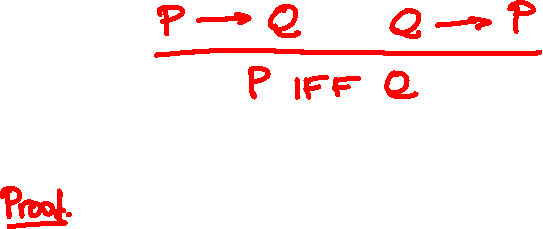 P → Q Q → P
P IFF Q
Proof.